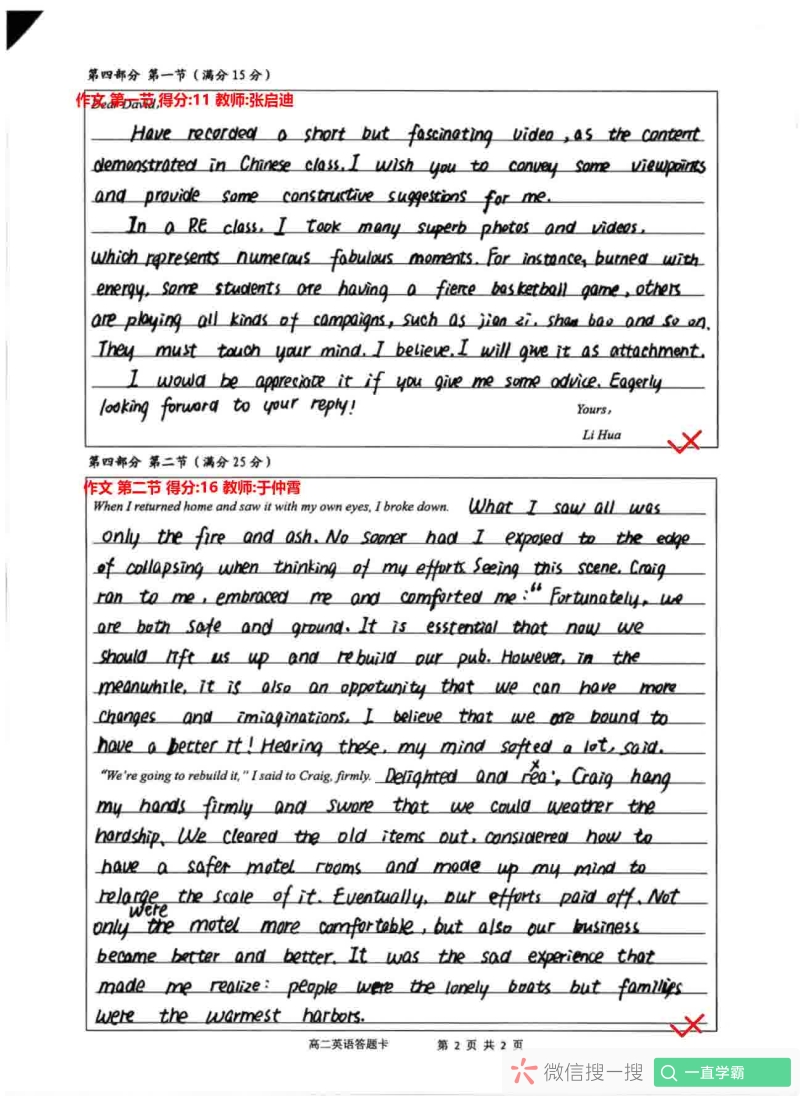 第四部分 第一节（满分15分）
作文 第一节 得分:11 教师:张启迪
Dear David,
Have recorded a short but fascinating video, as the content
demonstrated in Chinese class. I wish you to convey some viewpoints
and provide some constructive suggestions for me.
In a PE class, I took many superb photos and videos,
which represents numerous fabulous moments. For instance, burned with
energy, some students are having a fierce basketball game, others
are playing all kinds of campaigns, such as jian zi, sha bao and so on.
They must touch your mind, I believe. I will give it as attachment.
I would be appreciate it if you give me some advice. Eagerly
looking forward to your reply!
Yours,
Li Hua
第四部分 第二节（满分25分）
作文 第二节 得分:16 教师:于仲霄
When I returned home and saw it with my own eyes, I broke down. What I saw all was
only the fire and ash. No sooner had I exposed to the edge
of collapsing when thinking of my efforts. Seeing this scene, Craig
ran to me, embraced me and comforted me: "Fortunately, we
are both safe and ground. It is esstential that now we
should lift us up and rebuild our pub. However, in the
meanwhile, it is also an oppotunity that we can have more
changes and imiaginations. I believe that we are bound to
have a better it! Hearing these, my mind softed a lot, said.
"We're going to rebuild it," I said to Craig, firmly. Delighted and Craig hang
my hands firmly and swore that we could weather the
hardship. We cleared the old items out, considered how to
have a safer motel rooms and made up my mind to
relarge the scale of it. Eventually, our efforts paid off. Not
only were the motel more comfortable, but also our business
became better and better. It was the sad experience that
made me realize: people were the lonely boats but families
were the warmest harbors.
高二英语答题卡 第 2 页 共 2 页
微信搜一搜 一直学霸